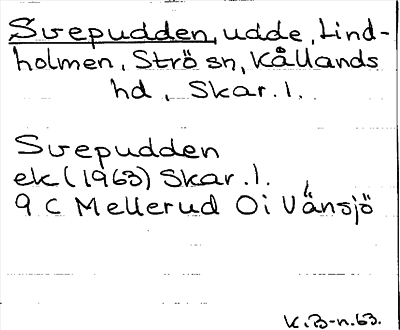 Svepudden, udde, Lind-
holmen, Strö sn, Kållands
hd, Skar. l.
Svepudden
ek (1963) Skar. l.
9 C Mellerud Oi Vänsjö
K. B-n. 63.